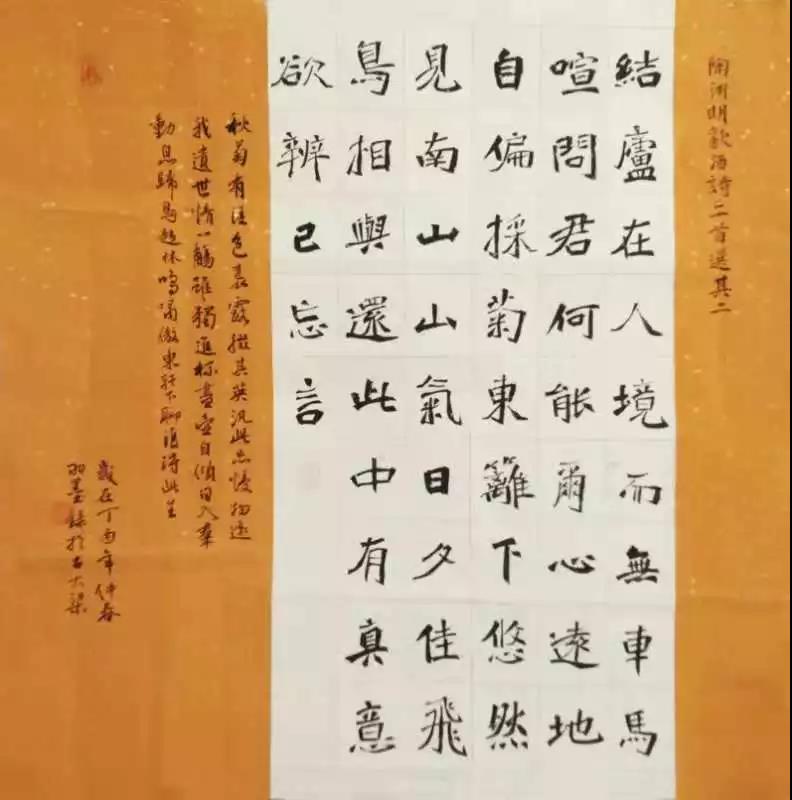 陶渊明飲酒詩二首選其二
結廬在人境而無車馬
喧問君何能爾心遠地
自偏採菊東籬下悠然
見南山山氣日夕佳飛
鳥相與還此中有真意
欲辨已忘言
秋菊有佳色裛露掇其英汎此忘憂物遠
我遺世情一觴雖獨進杯盡壺自傾日入羣
動息歸鳥趨林鳴嘯傲東軒下聊復得此生
歲在丁酉年仲春
墨錄於古大梁